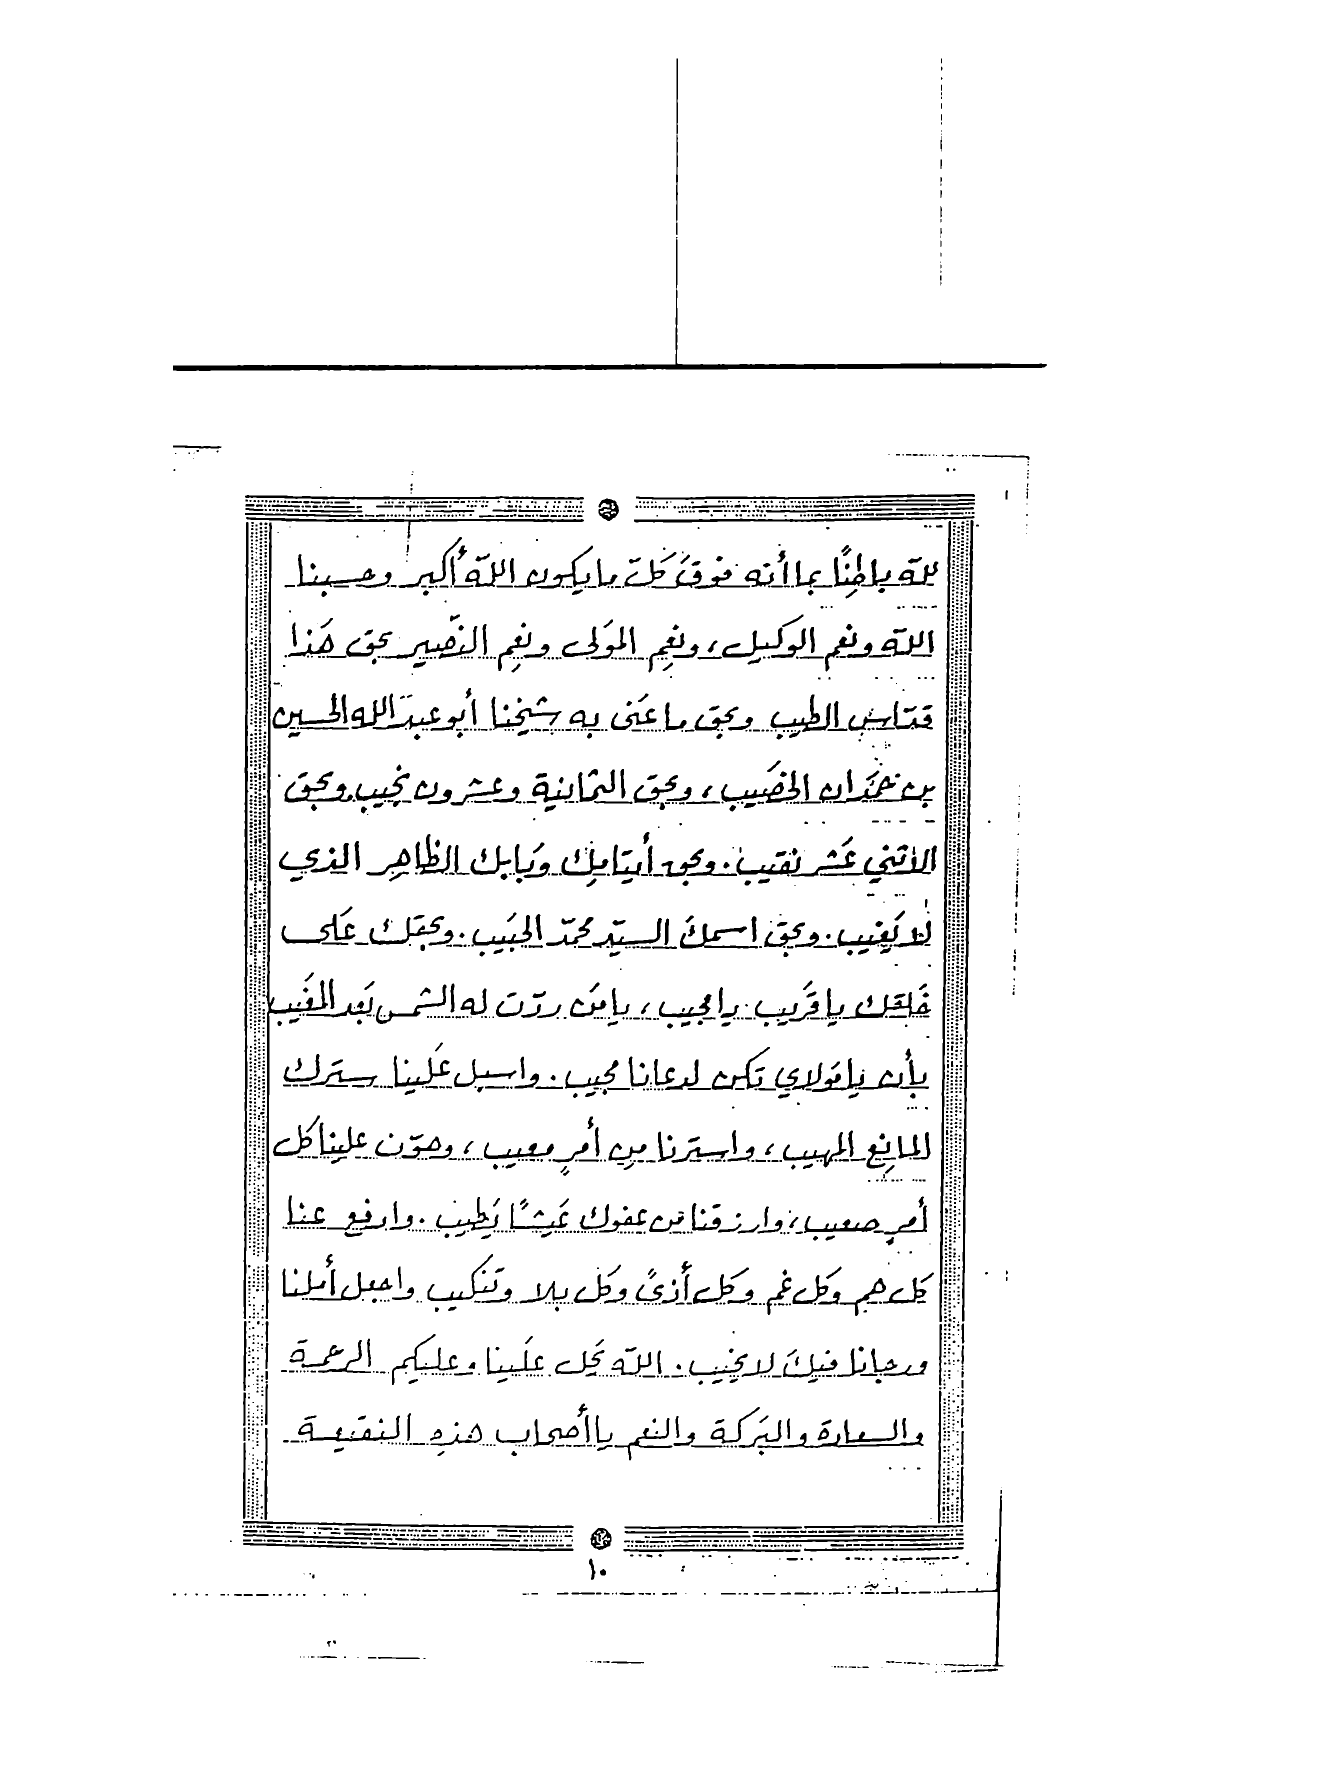 لله باطِنًا بما أنه فوقَ كلّ ما يكون الله أكبر وحسبنا
الله ونعم الوكيل، ونِعِم المَولى ونِعِم النَّصير بحق هَذا
قدّاس الطيب وبحق ما عَنى به شيخنا أبو عبد الله الحسين
بن حَمَدان الخصَيب، وبحق الثمانية وعشرون نجيب. وبحق
الاثني عَشر نقيب. وبحق أيتامِك وبَابك الظاهِر الذي
لا يَغيب. وبحق اسمكَ السيّد محمّد الحبَيب. وبحقك عَلى
خَلقك يا قَريب يا مجيب، يا مَن ردّت له الشمس بَعد المغَيب
بأن يا مَولاي تكن لدعانا مجيب. واسبل عَلينا ستَرك
المانِع المهيب، واسترنا مِن أمرٍ معيب، وهوّن علينا كل
أمرٍ صعيب، وارزقنا من عفوك عَيشًا يَطيب. وارفع عنا
كل هم وكل غم وكل أذىً وكل بلا وتَنكيب واجعل أملنا
ورجانا فيكَ لا يخيب. الله يَحل علَينا وعليكم الرحمة
والسعادة والبَركة والنعم يا أصحاب هذهِ النقيعة
١٠